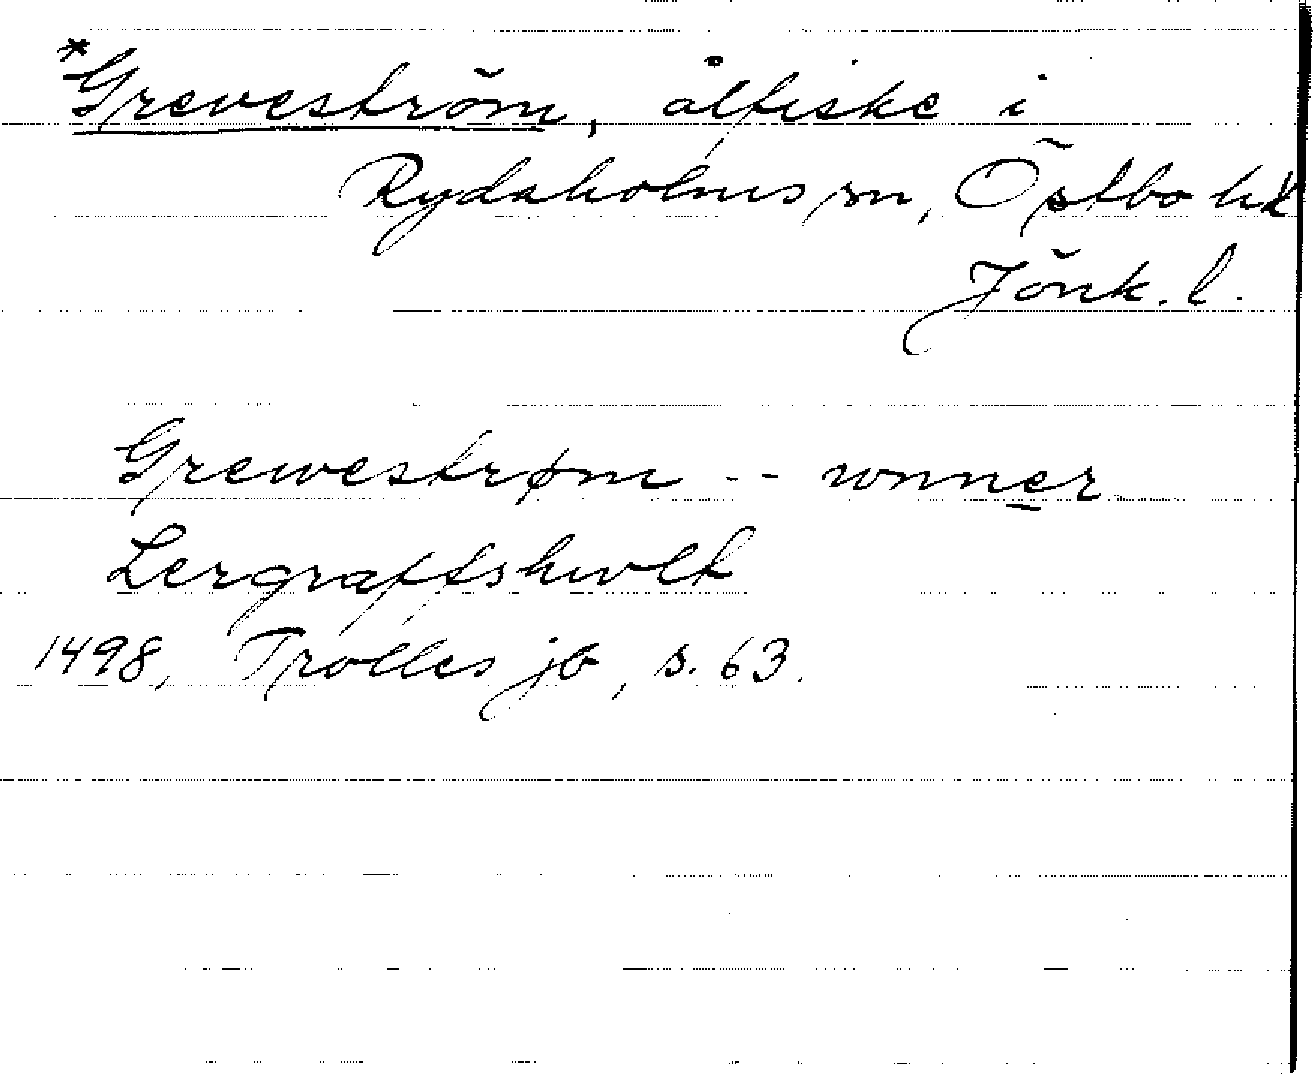 *Greveström, ålfiske i
Rydaholms sn, Östbo hd
Jönk. l.
Grewestrøm -- wnner
Lergraffshwlt
1498, Trolles jb, s. 63.